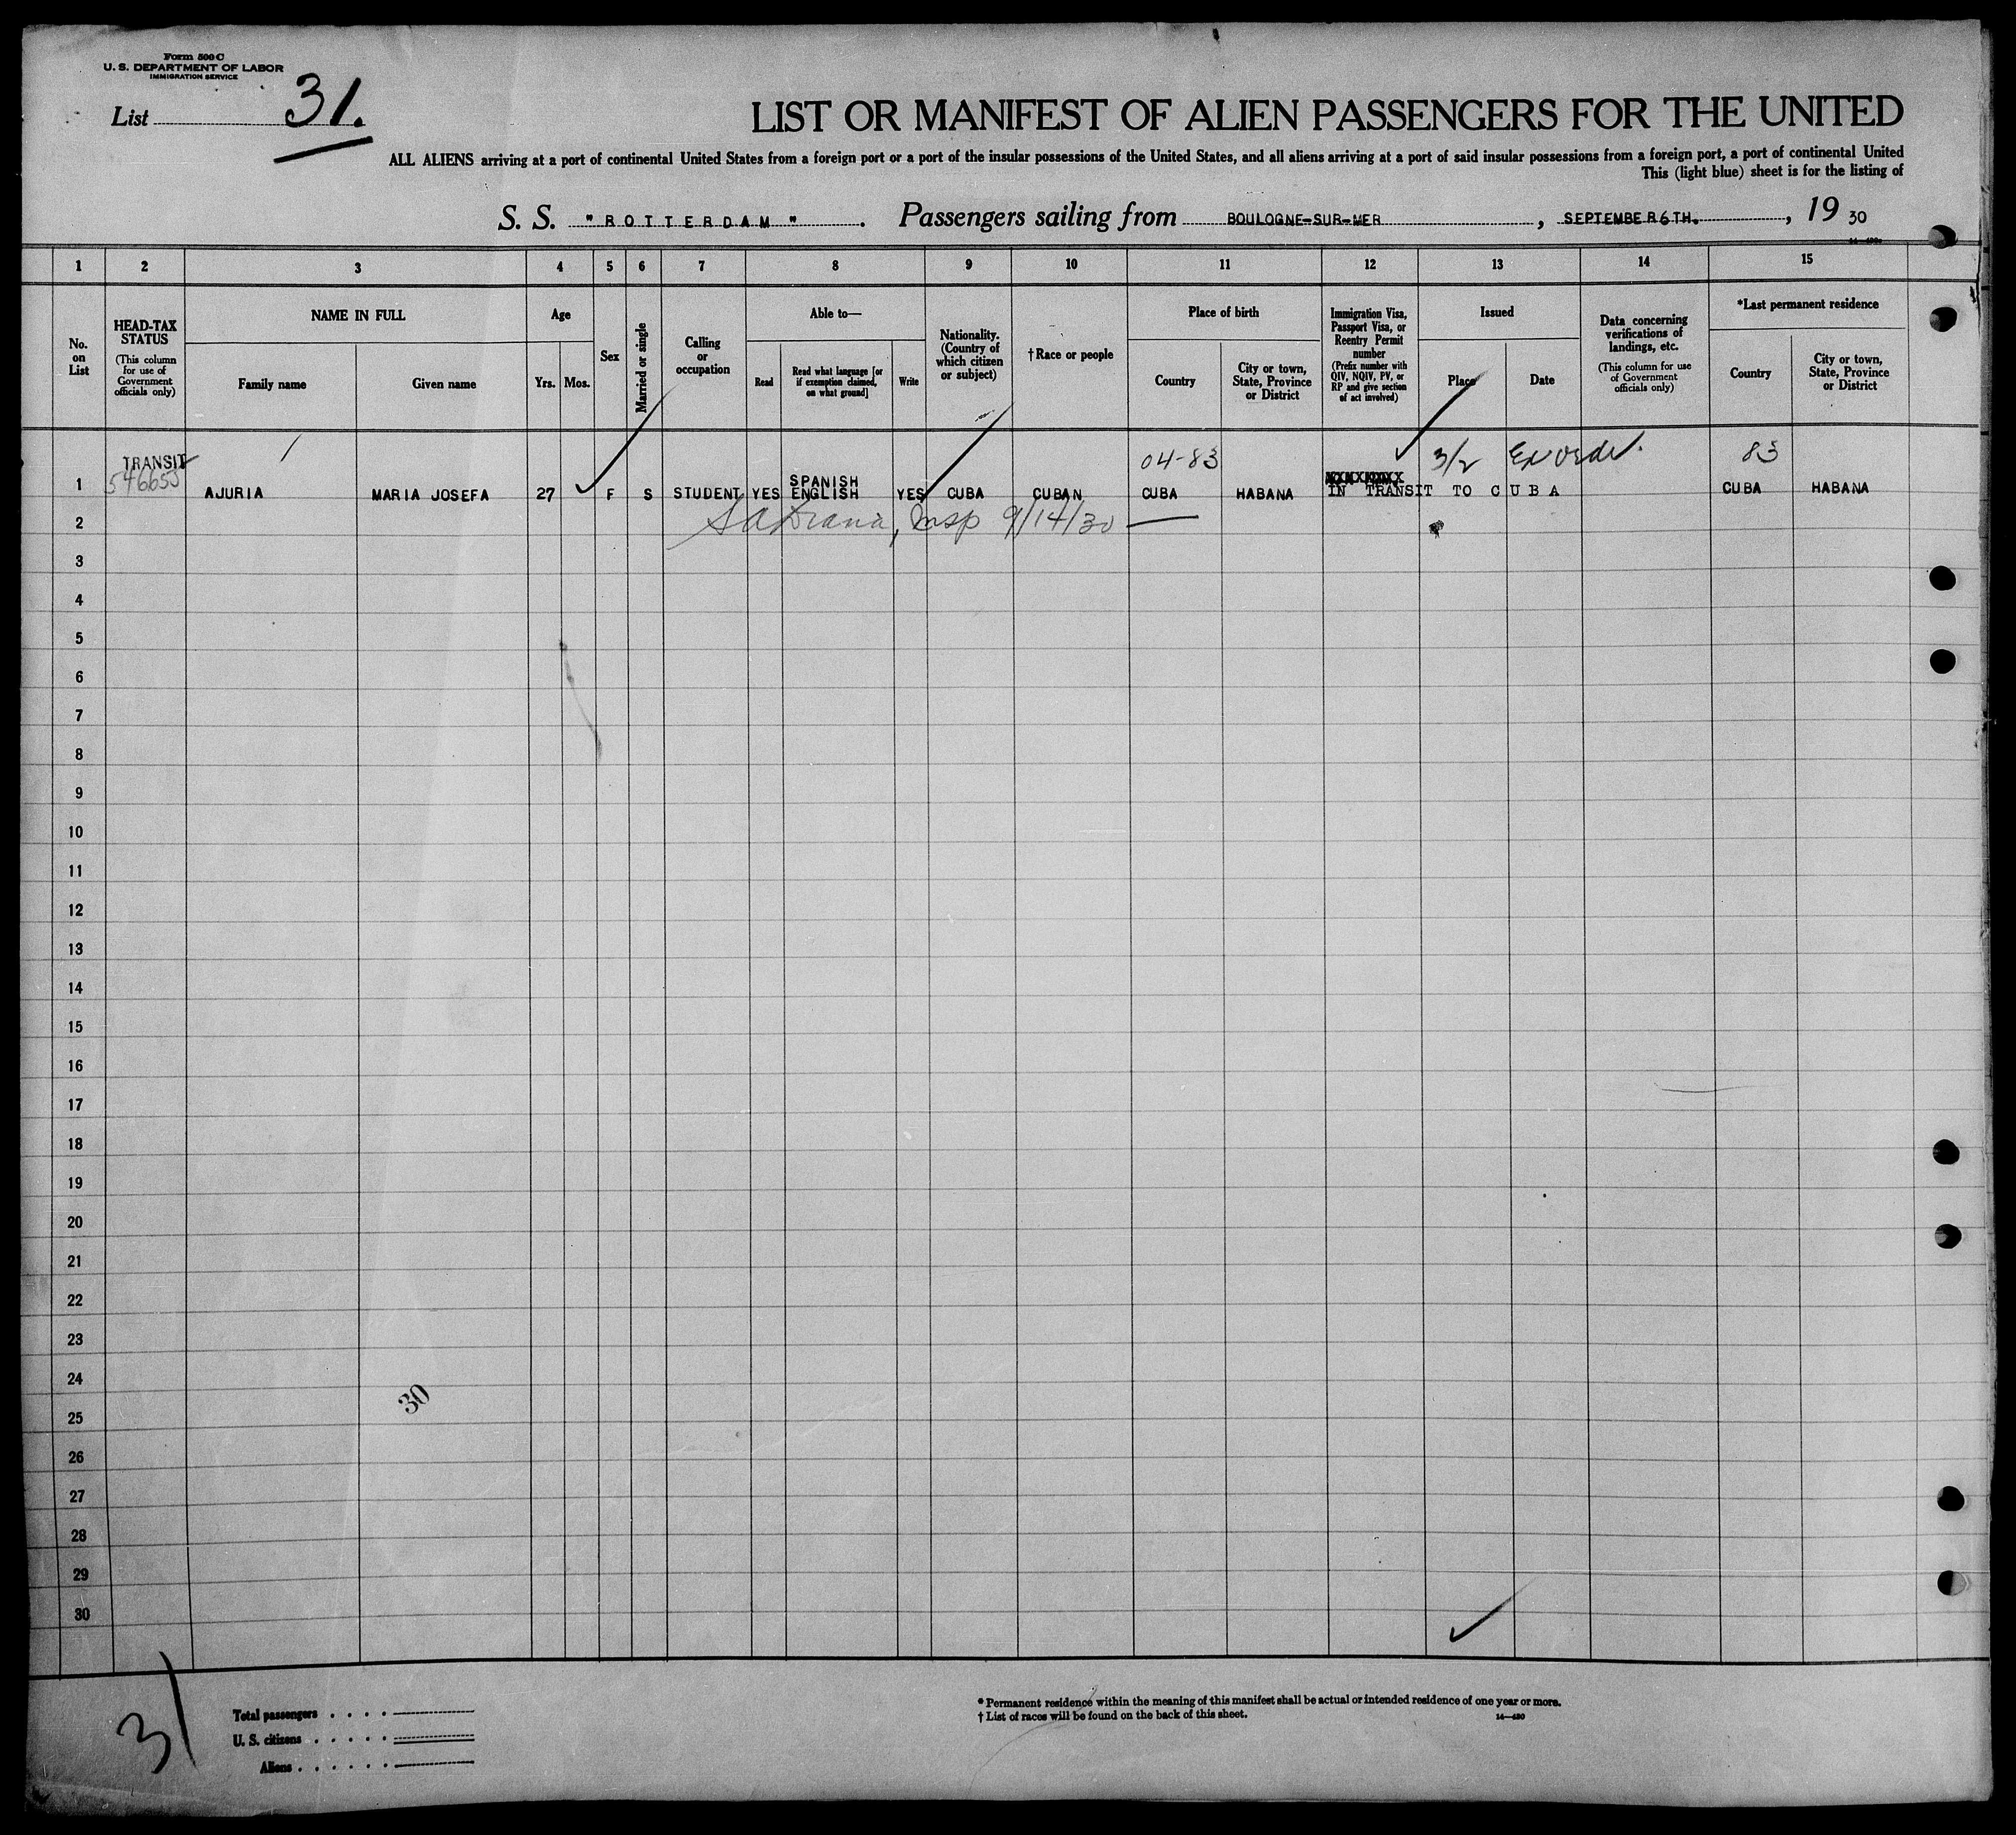 Form 500 C
U. S. DEPARTMENT OF LABOR
IMMIGRATION SERVICE
List 31.
LIST OR MANIFEST OF ALIEN PASSENGERS FOR THE UNITED
ALL ALIENS arriving at a port of continental United States from a foreign port or a port of the insular possessions of the United States, and all aliens arriving at a port of said insular possessions from a foreign port, a port of continental United
This (light blue) sheet is for the listing of
S. S. "ROTTERDAM". Passengers sailing from BOULOGNE-SUR-MER, SEPTEMBER 6TH., 19 30
1 2 3 4 5 6 7 8 9 10 11 12 13 14 15
No. on List
HEAD-TAX STATUS (This column for use of Government officials only)
NAME IN FULL
Family name
Given name
Age
Yrs.
Mos.
Sex
Married or single
Calling or occupation
Able to—
Read
Read what language [or if exemption claimed, on what ground]
Write
Nationality. (Country of which citizen or subject)
†Race or people
Place of birth
Country
City or town, State, Province or District
Immigration Visa, Passport Visa, or Reentry Permit number (Prefix number with QIV, NQIV, PV, or RP and give section of act involved)
Issued
Place
Date
Data concerning verifications of landings, etc. (This column for use of Government officials only)
*Last permanent residence
Country
City or town, State, Province or District
TRANSIT 04-83 3/2 83
546655
1 AJURIA MARIA JOSEFA 27 F S STUDENT YES SPANISH ENGLISH YES CUBA CUBAN CUBA HABANA IN TRANSIT TO CUBA CUBA HABANA
2 Insp 9/14/30
3
4
5
6
7
8
9
10
11
12
13
14
15
16
17
18
19
20
21
22
23
24
30
25
26
27
28
29
30
31
Total passengers
U. S. citizens
Aliens
* Permanent residence within the meaning of this manifest shall be actual or intended residence of one year or more.
† List of races will be found on the back of this sheet.
14—430